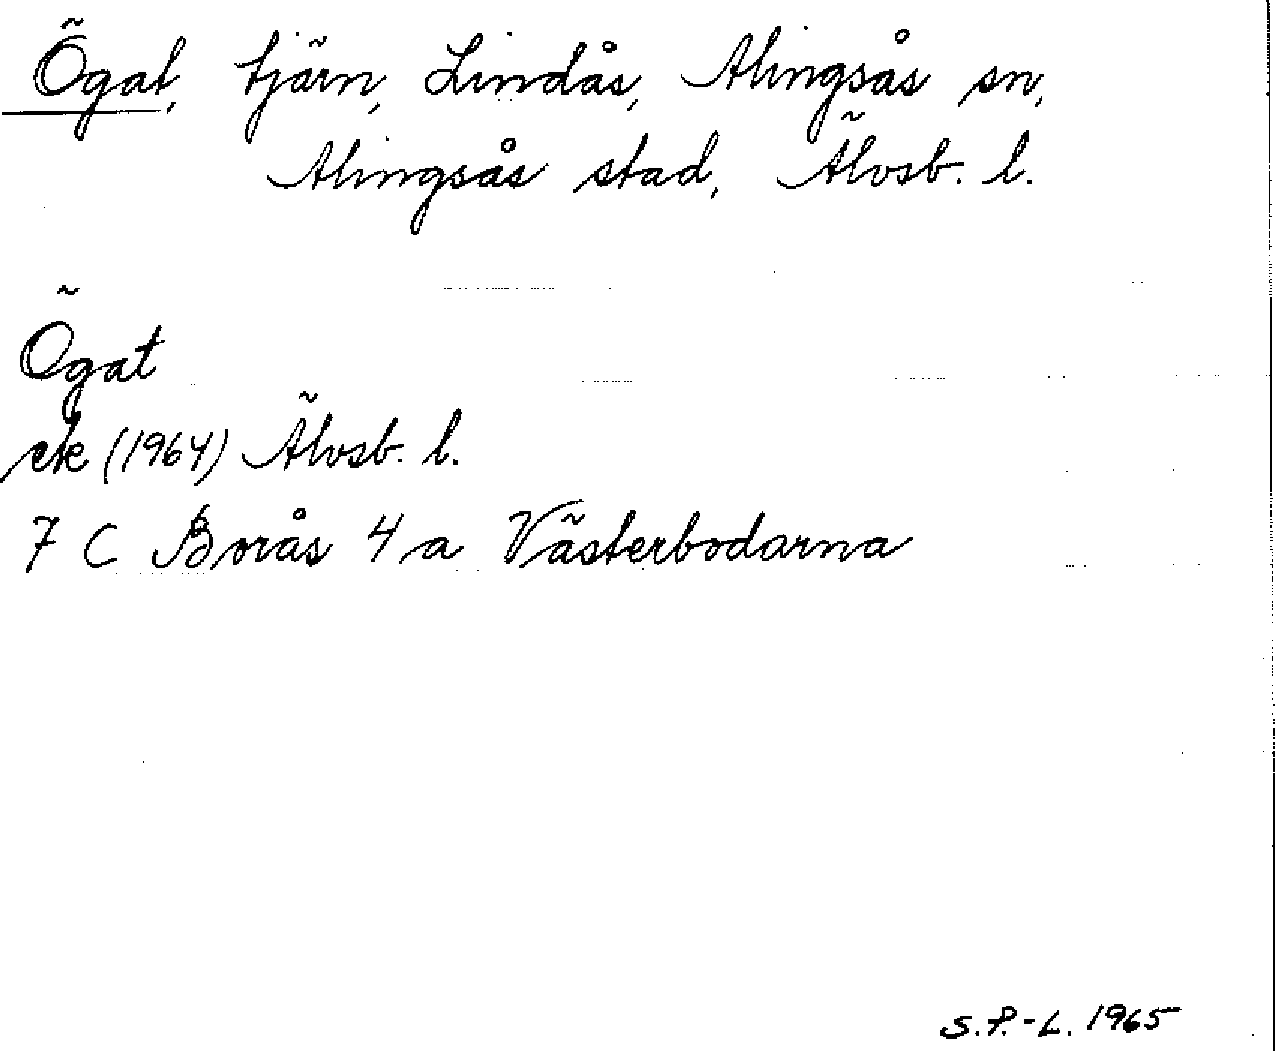 Ögat, tjärn, Lindås, Alingsås sn,
Alingsås stad, Älvsb. l.
Ögat
ek (1964) Älvsb. l.
7 C Borås 4 a Västerbodarna
S.P.-L. 1965